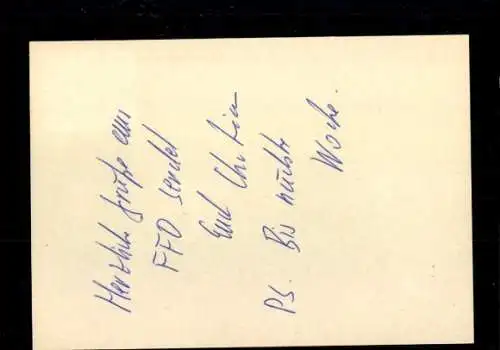 Herzliche Grüße aus
FFO sendet
Euch Christin
PS. Bis nächste
Woche.